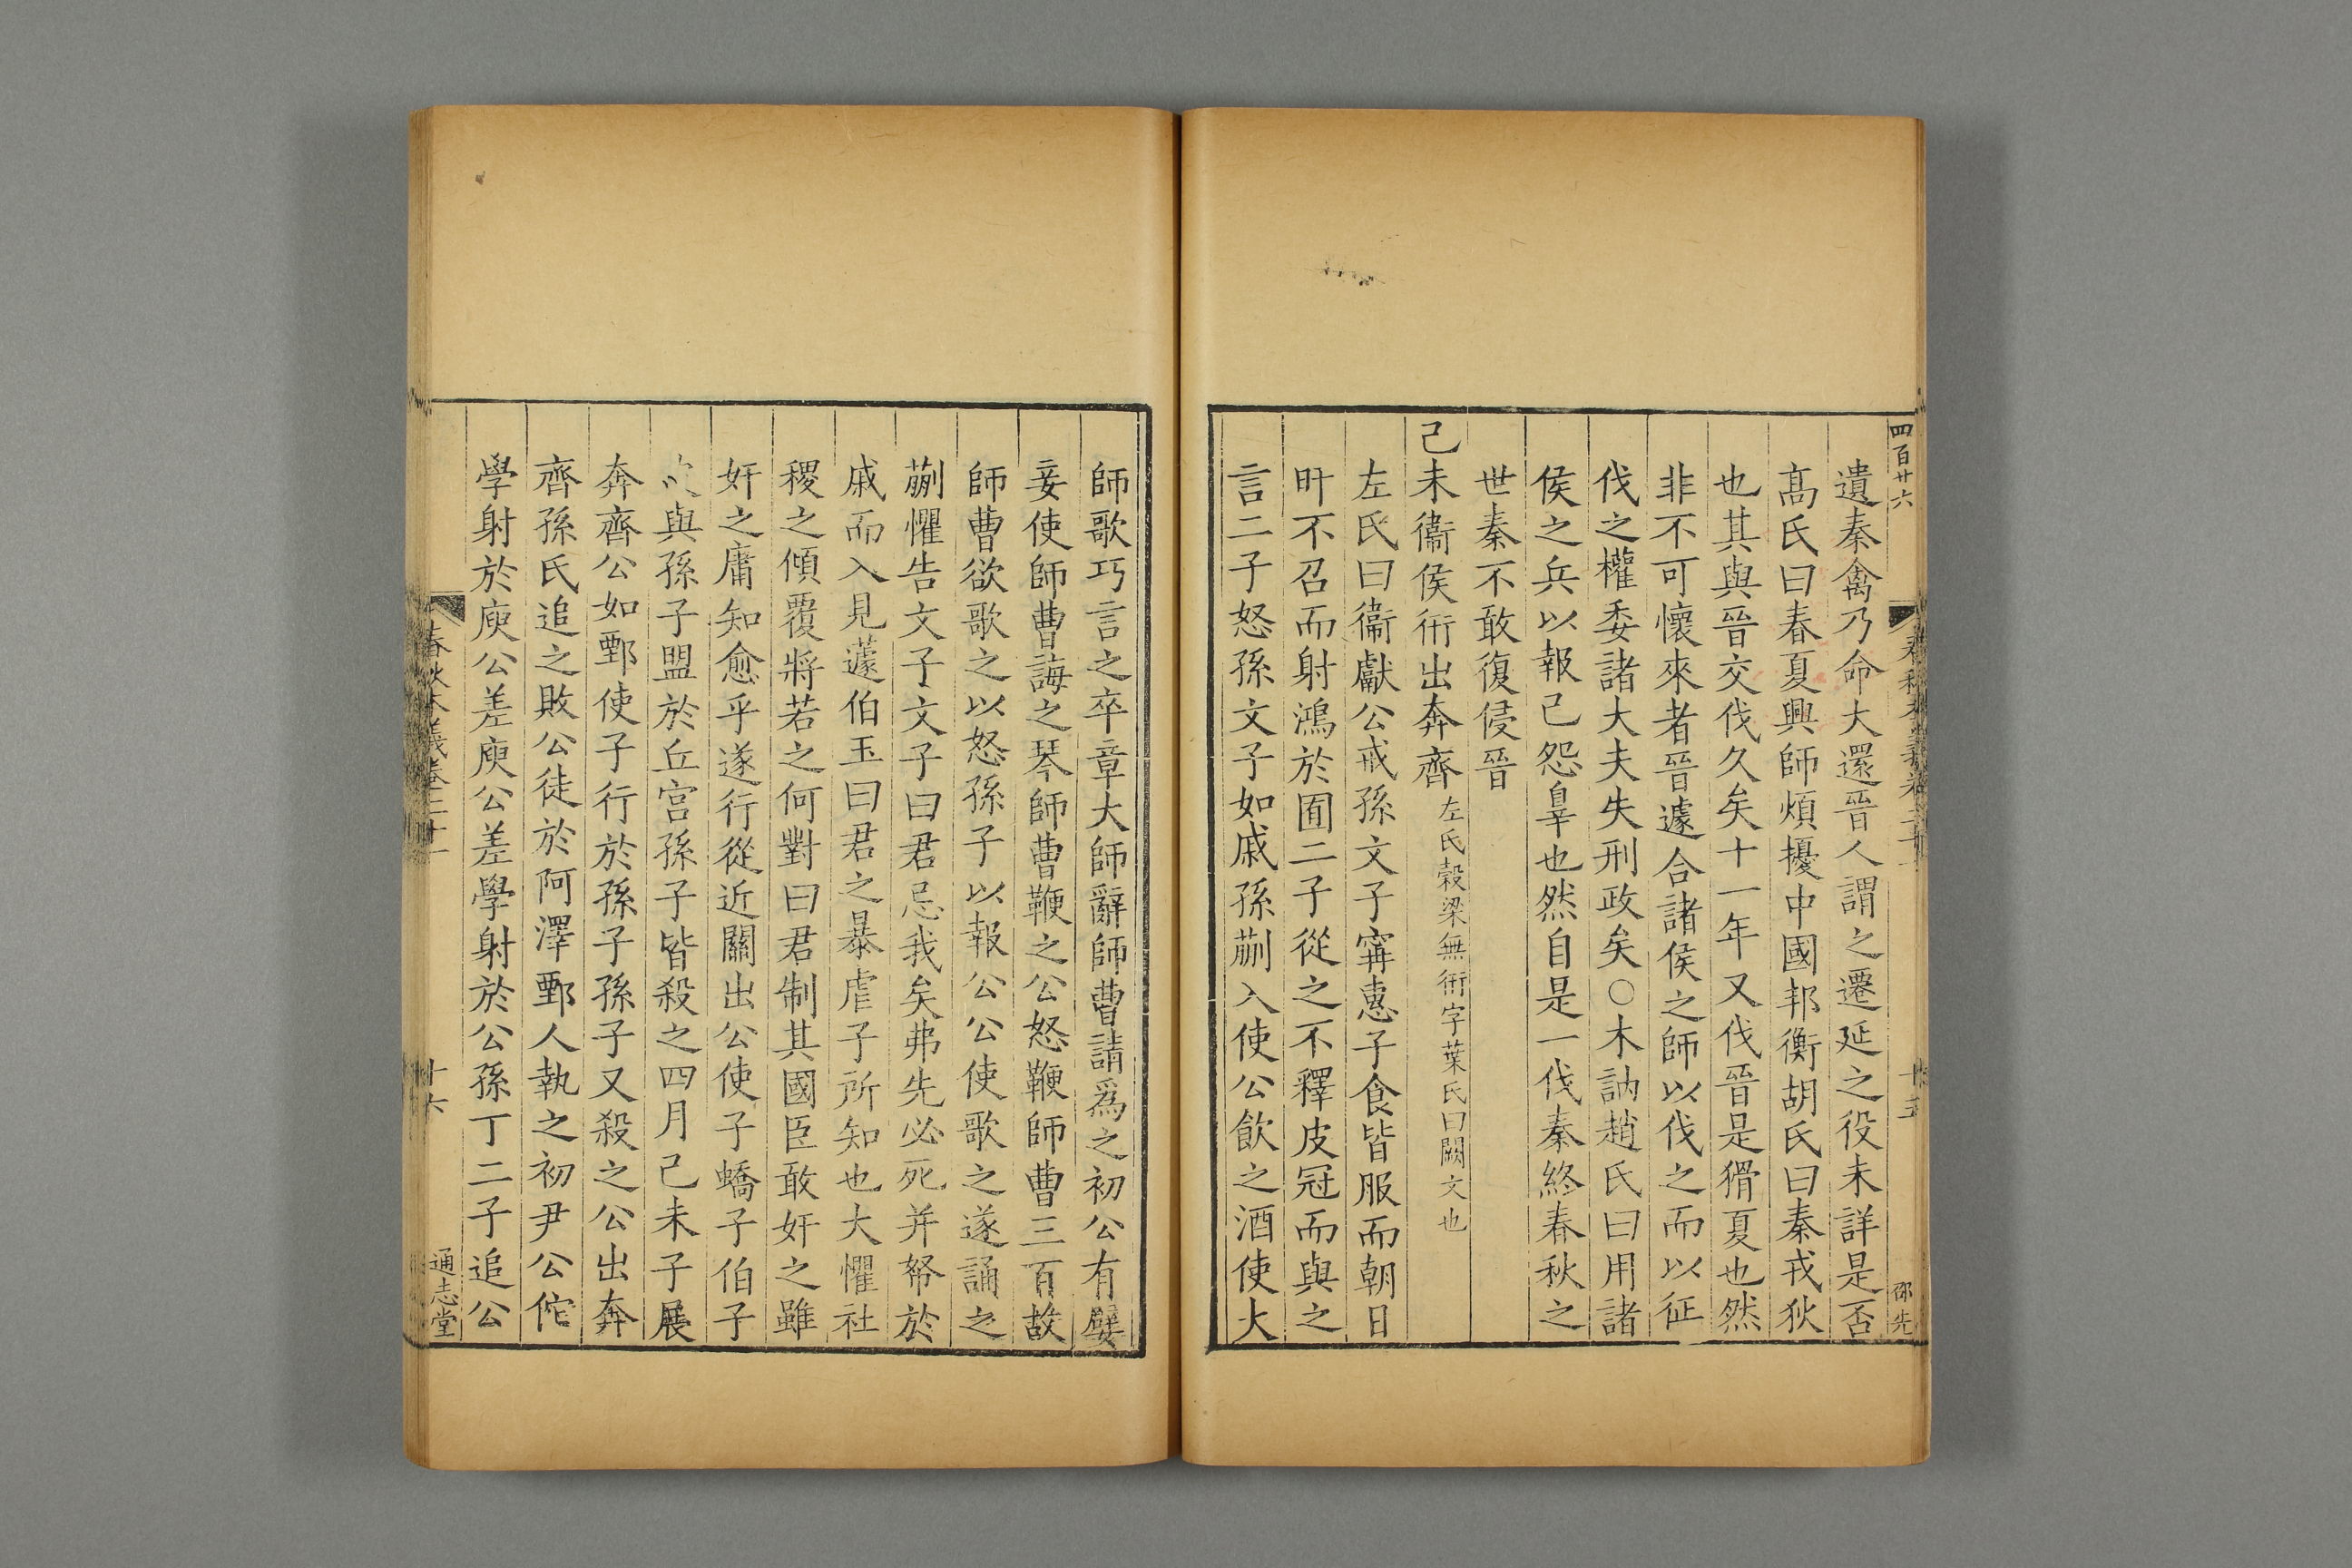 四百廿六
春秋本義卷二十一
十五
邵先
遺秦禽乃命大還晉人謂之遷延之役未詳是否
髙氏曰春夏興師煩擾中國邦衡胡氏曰秦戎狄
也其與晉交伐久矣十一年又伐晉是猾夏也然
非不可懷來者晉遽合諸侯之師以伐之而以征
伐之權委諸大夫失刑政矣○木訥趙氏曰用諸
侯之兵以報己怨辠也然自是一伐秦終春秋之
世秦不敢復侵晉
己未衞侯衎出奔齊左氏穀梁無衎字葉氏曰闕文也
左氏曰衞獻公戒孫文子甯惠子食皆服而朝日
旰不召而射鴻於囿二子從之不釋皮冠而與之
言二子怒孫文子如戚孫蒯入使公飲之酒使大
師歌巧言之卒章大師辭師曹請爲之初公有嬖
妾使師曹誨之琴師曹鞭之公怒鞭師曹三百故
師曹欲歌之以怒孫子以報公公使歌之遂誦之
蒯懼告文子文子曰君忌我矣弗先必死并帑於
戚而入見蘧伯玉曰君之暴虐子所知也大懼社
稷之傾覆將若之何對曰君制其國臣敢奸之雖
奸之庸知愈乎遂行從近關出公使子蟜子伯子
皮與孫子盟於丘宫孫子皆殺之四月己未子展
奔齊公如鄄使子行於孫子孫子又殺之公出奔
齊孫氏追之敗公徒於阿澤鄄人執之初尹公佗
學射於庾公差庾公差學射於公孫丁二子追公
春秋本義卷二十一
十六
通志堂